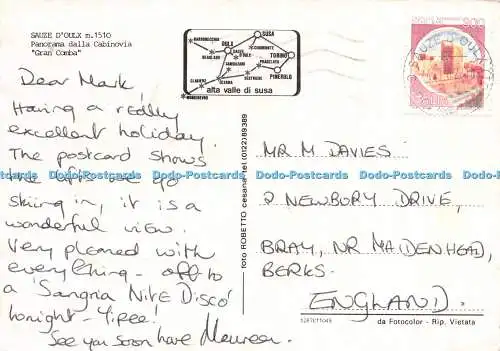 SAUZE D'OULX m.1510
Panorama dalla Cabinovia
"Gran Comba"
Dear Mark,
Having a really
excellent holiday.
The postcard shows
the lifts we go
skiing in, it is a
wonderful view.
Very pleased with
everything - off to
a 'Sangria Nite Disco'
tonight - Yipee!
See you soon love Maureen.
BARDONECCHIA
SUSA
OULX
TORINO
PINEROLO
alta valle di susa
foto ROBETTO cesana tel (0122)89389
SAUZE D'OULX
MR M DAVIES.
2 NEWBURY DRIVE,
BRAY, NR MAIDENHEAD,
BERKS.
ENGLAND.
da Fotocolor - Rip. Vietata
Dodo-Postcards Dodo-Postcards Dodo-Postcards Dodo-Postcards